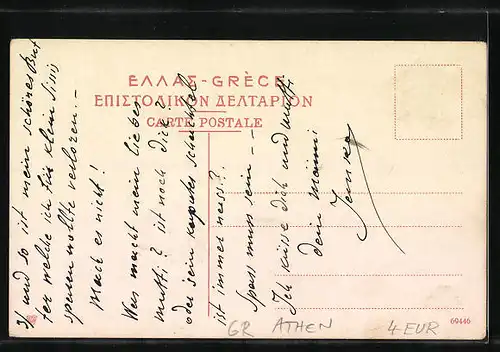 ΕΛΛΑΣ-GRÈCE
ΕΠΙΣΤΟΛΙΚΟΝ ΔΕΛΤΑΡΙΟΝ
CARTE POSTALE
3/ und so ist mein schönes
ter welche ich für klein Sissis
spesen wollte verloren.-
Mach es nicht!
Was macht mein lieber
mutti? ist noch dick?
oder sein kaputes
ist immer
Spass muss sein --
Ich küsse dich und mutti
dein
69446
GR ATHEN 4 EUR